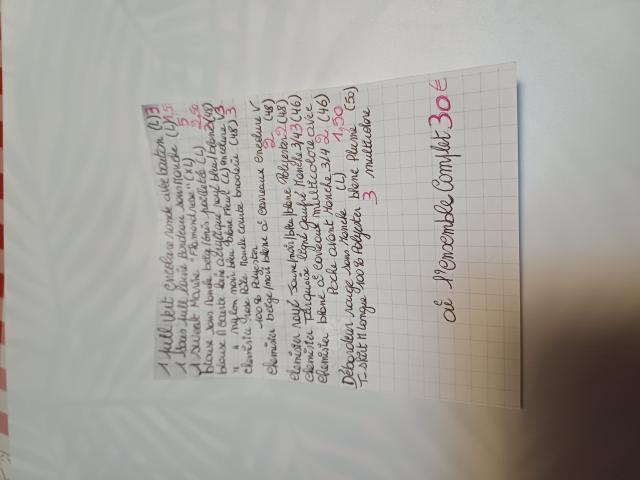 1 Pull Vert encolure ronde avec bouton (L) 3
1 Sous Pull lurex Bordeau sans Manche (L) 1,5
1 suivant Mariné "Flamand rose" (XL) 5
blouse sans Manche beige/noir pailletée (L) 2,50
blouse Manche 3/4 acrylique rayé bleu/blanc (48)
" " nylon noir bleu blanc fleuri (L) encolure V 3
chemisier rose pâle Manche courte broderie (48) 3
100% Polyester
chemisier beige/noir blanc à carreaux encolure V
2 (48)
chemisier rayé jaune/noir/bleu/blanc Polyester 2 (48)
chemisier Turquoise ligné gaufré Manche 3/4 3 (46)
chemisier blanc à carreaux multicolore avec
Poche avant Manche 3/4 2 (46)
Débardeur rouge sans Manche (L) 1,50
T-shirt M longue 100% Polyester blanc Plume (50)
3 multicolore
à l'Ensemble Complet 30€